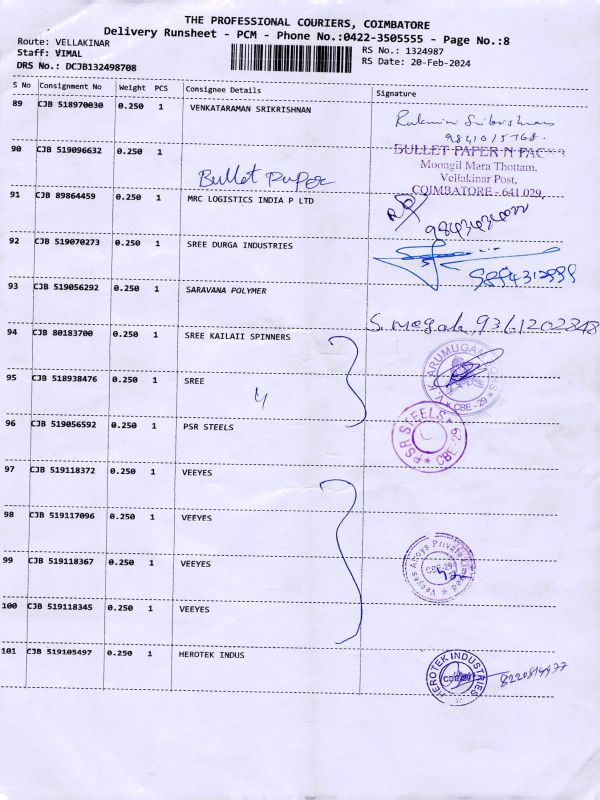 THE PROFESSIONAL COURIERS, COIMBATORE
Delivery Runsheet - PCM - Phone No.:0422-3505555 - Page No.:8
Route: VELLAKINAR
RS No.: 1324987
Staff: VIMAL
RS Date: 20-Feb-2024
DRS No.: DCJB132498708
S No Consignment No Weight PCS Consignee Details Signature
89 CJB 518970030 0.250 1 VENKATARAMAN SRIKRISHNAN
Srikrishnan
90 CJB 519096632 0.250 1
Bullet paper
BULLET PAPER N PACKS
Moongil Mara Thottam,
Vellakinar Post,
COIMBATORE - 641 029.
91 CJB 89864459 0.250 1 MRC LOGISTICS INDIA P LTD
92 CJB 519070273 0.250 1 SREE DURGA INDUSTRIES
93 CJB 519056292 0.250 1 SARAVANA POLYMER
S. megala, 9361202848
94 CJB 80183700 0.250 1 SREE KAILAII SPINNERS
V.K. ARUMUGAM SONS
CBE - 29
95 CJB 518938476 0.250 1 SREE
4
96 CJB 519056592 0.250 1 PSR STEELS
PSR STEELS
CBE - 29
97 CJB 519118372 0.250 1 VEEYES
98 CJB 519117096 0.250 1 VEEYES
99 CJB 519118367 0.250 1 VEEYES
Veeyes Alloys Private Limited
CBE-29
100 CJB 519118345 0.250 1 VEEYES
101 CJB 519105497 0.250 1 HEROTEK INDUS
HEROTEK INDUSTRIES
8220814977